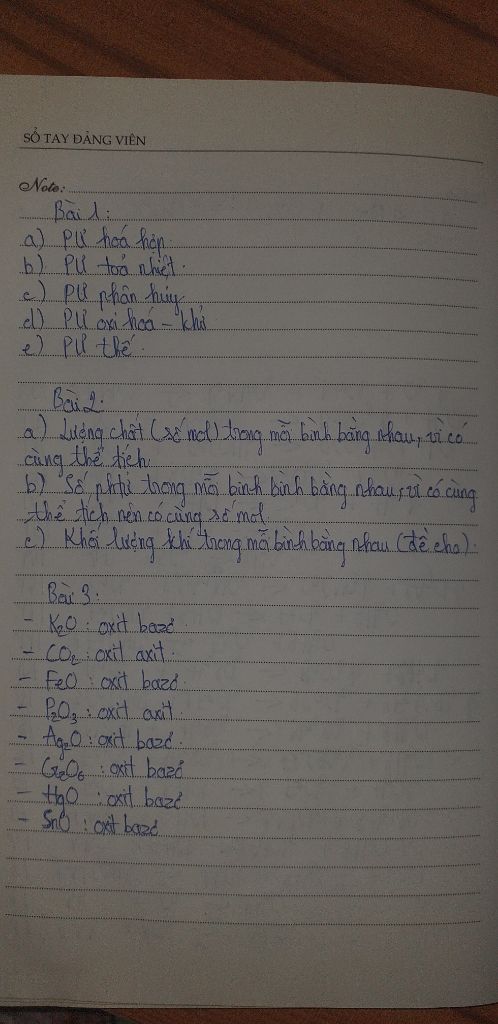 SỔ TAY ĐẢNG VIÊN
Note:
Bài 1:
a) PƯ hoá hợp.
b) PƯ toả nhiệt.
c) PƯ phân hủy
d) PƯ oxi hoá - khử
e) PƯ thế.
Bài 2.
a) Lượng chất (số mol) trong mỗi bình bằng nhau, vì có
cùng thể tích.
b) Số phtử trong mỗi bình bình bằng nhau, vì có cùng
thể tích nên có cùng số mol
c) Khối lượng khí trong mỗi bình bằng nhau (đề cho).
Bài 3:
- K2O : oxit bazơ
- CO2 : oxit axit.
- FeO : oxit bazơ.
- P2O3 : oxit axit
- Ag2O : oxit bazơ.
- Cr2O6 : oxit bazơ
- HgO : oxit bazơ
- SnO : oxit bazơ